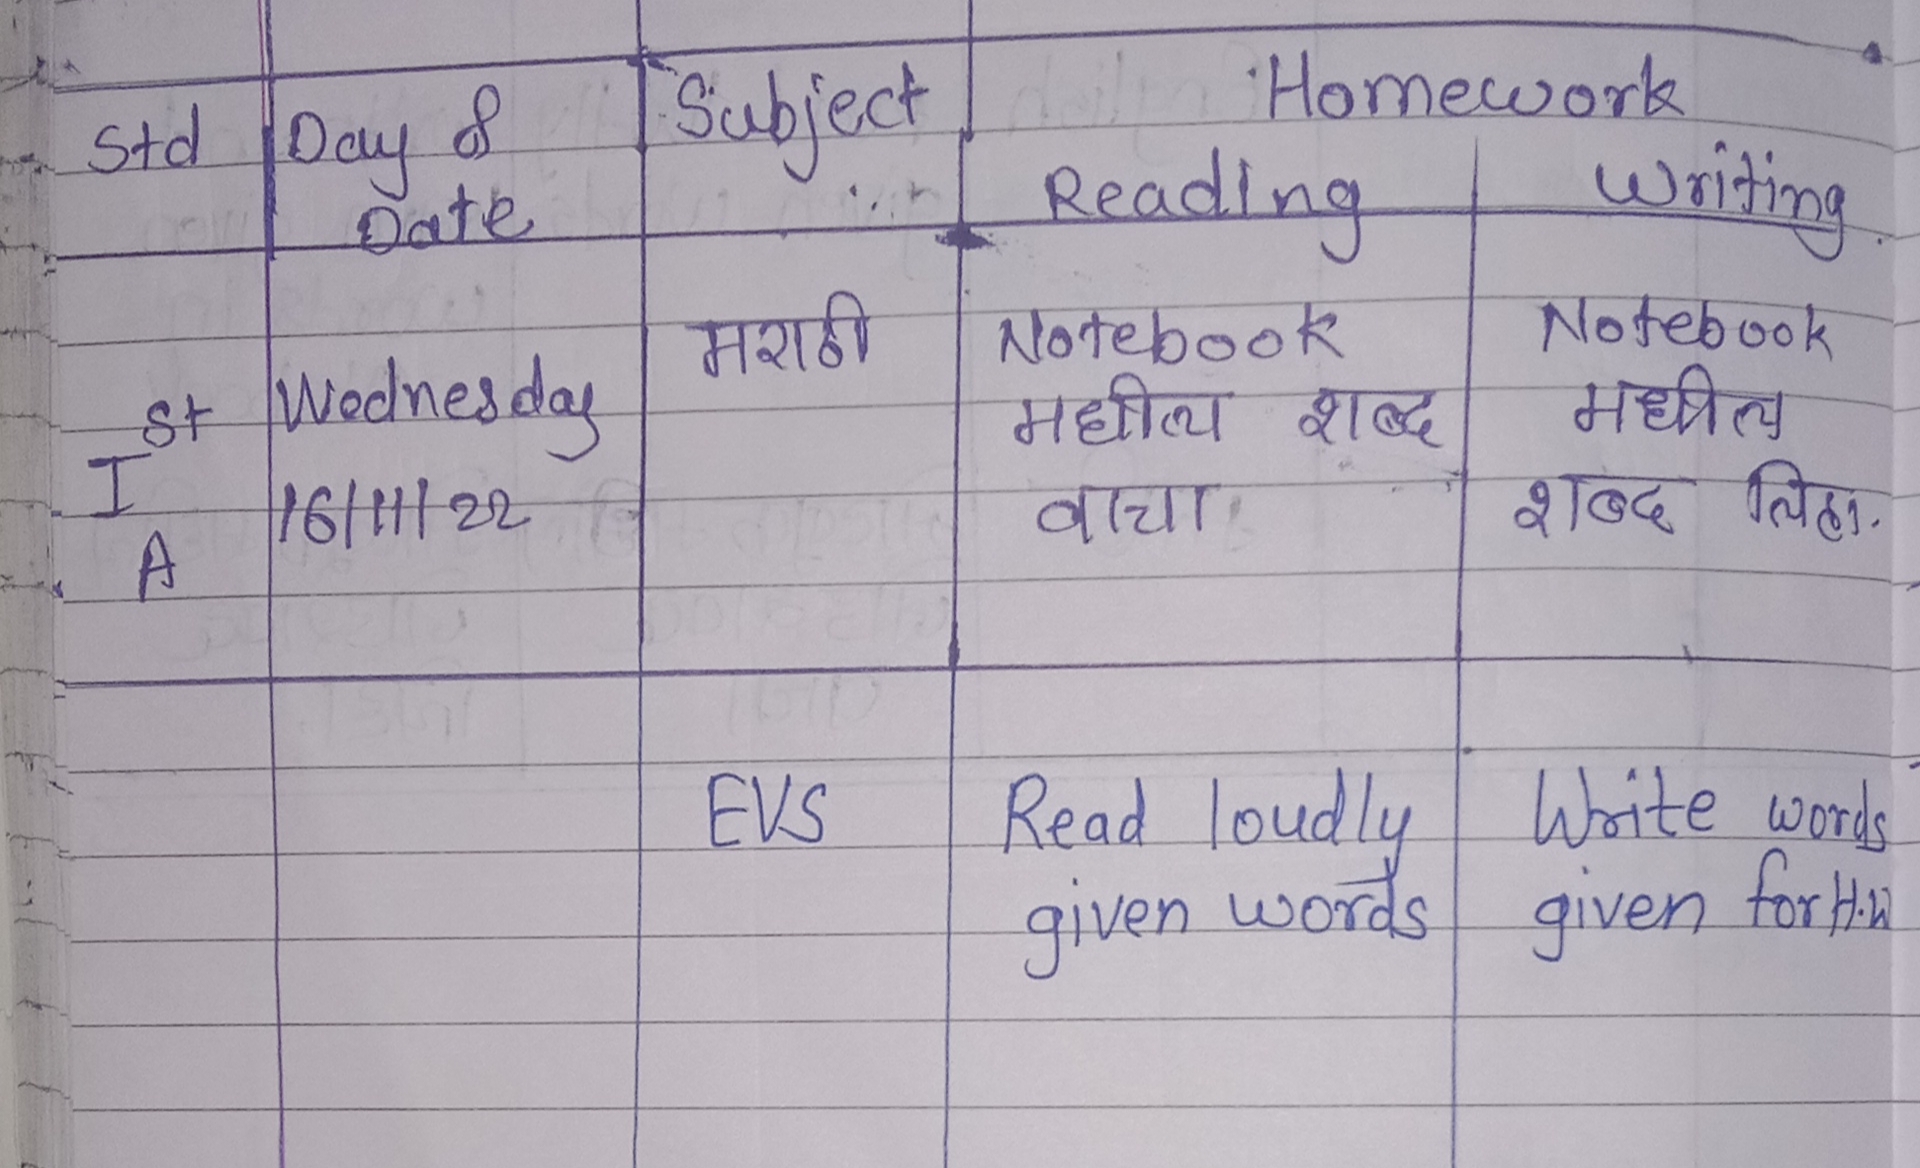 Std Day & Date Subject Homework
Reading Writing
Ist A Wednesday 16/11/22 मराठी Notebook मधील शब्द वाचा. Notebook मधील शब्द लिहा.
EVS Read loudly given words Write words given for H.W